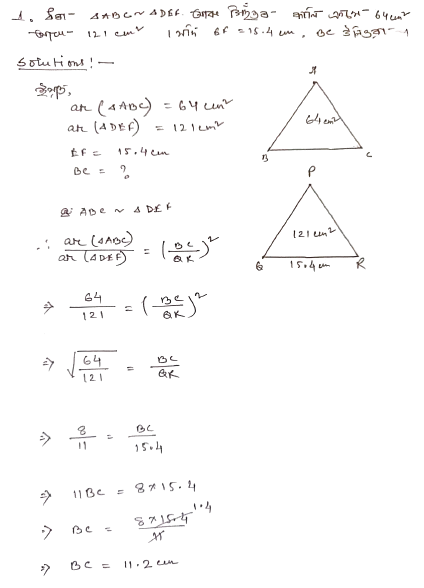 1. ধৰা- ΔABC ~ ΔDEF আৰু কালি ক্ৰমে- 64 cm²
আৰু- 121 cm² । যদি EF = 15.4 cm, BC উলিওৱা- ।
Solutions! —
ইয়াত,
ar (ΔABC) = 64 cm²
ar (ΔDEF) = 121 cm²
EF = 15.4 cm
BC = ?
ΔABC ~ ΔDEF
∴ ar (ΔABC) / ar (ΔDEF) = (BC / QR)²
⇒ 64 / 121 = (BC / QR)²
⇒ √(64 / 121) = BC / QR
⇒ 8 / 11 = BC / 15.4
⇒ 11BC = 8 × 15.4
⇒ BC = 8 × 15.4 / 11 1.4
⇒ BC = 11.2 cm
A
64 cm²
B C
P
121 cm²
Q 15.4 cm R